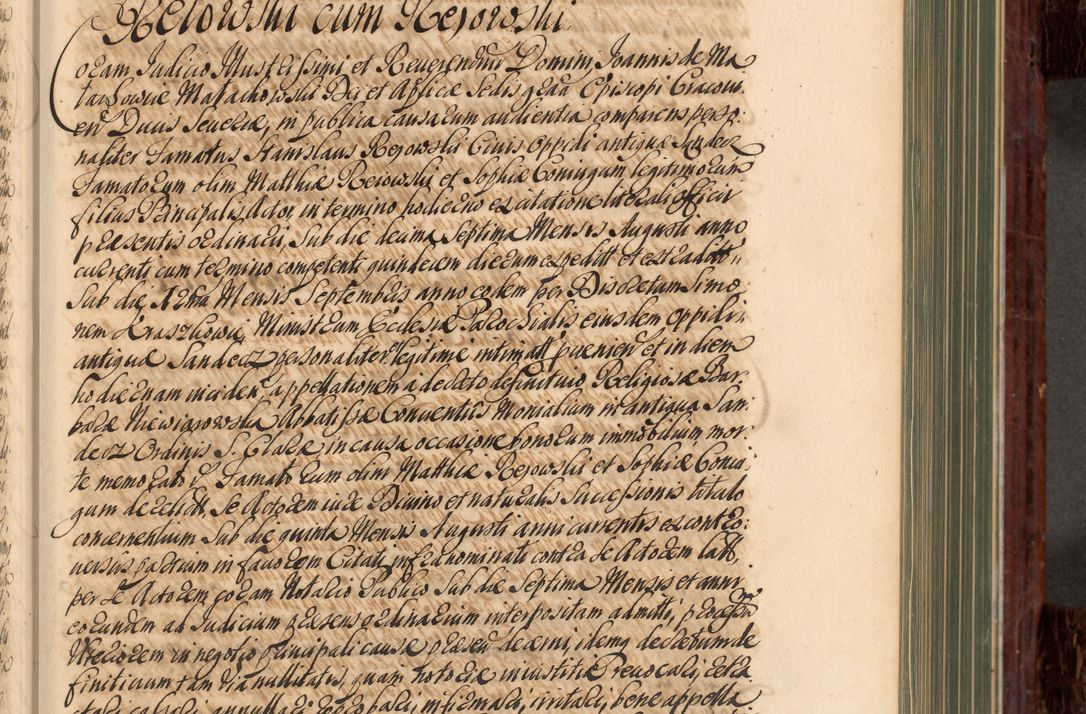 Rejowski cum Rejowski.
Coram Judicio Illustrissimi et Reverendissimi Domini, Joannis de Ma
lachowice Małachowski Dei et Aplicæ Sedis gratia Episcopi Cracovi:
en: Ducis Severiæ, in publica causarum audientia comparens perso:
naliter Famatus Stanislaus Rejowski Civis Oppidi antiqua Sandecz
Famatorum olim Matthiæ Reiowski et Sophiæ Coniugum legitimorum
filius Principalis Actor, in termino hodierno ex citatione literali officii
præsentis ordinarii, sub die decima Septima Mensis Augusti anno
currenti cum termino competenti quindecem dierum expedit et extradit:
sub die 12ma Mensis Septembris anno eodem per Discretum Simo
nem Kraszkowic, Ministrum Ecclesiæ Parochialis eiusdem oppidi
antiqua Sandecz personaliter legitime intimat provenien et in diem
hodiernam inciden, appellationem a decreto definitivo, Religiosæ Bar:
baræ Niewiarowska Abbatissæ Conventus Monialium in antiqua San:
decz Ordinis S. Claræ, in causa occasione bonorum immobilium mor:
te memorato Famatorum olim Matthiæ Rejowski et Sophiæ Coniu:
gum derelict, se Actorem iure Divino et naturalis Successionis titulo
concernentium sub die quinta Mensis Augusti anni currentis ex contro:
versiis partium in favorem Citati infranominati contra se Actorem lat,
per se Actorem coram Notario Publico sub die Septima Mensis et anni
eorundem ad Judicium præsens ordinarium interpositam admitti, processum
Ulteriorem in negotio principali causæ præsen decerni, idemq decretum de
finitivum tam via nullitatis, quam notoriæ iniustitiæ revocari, retra
ctari cassari, annullari revocari, infirmari, irritari, bene appella